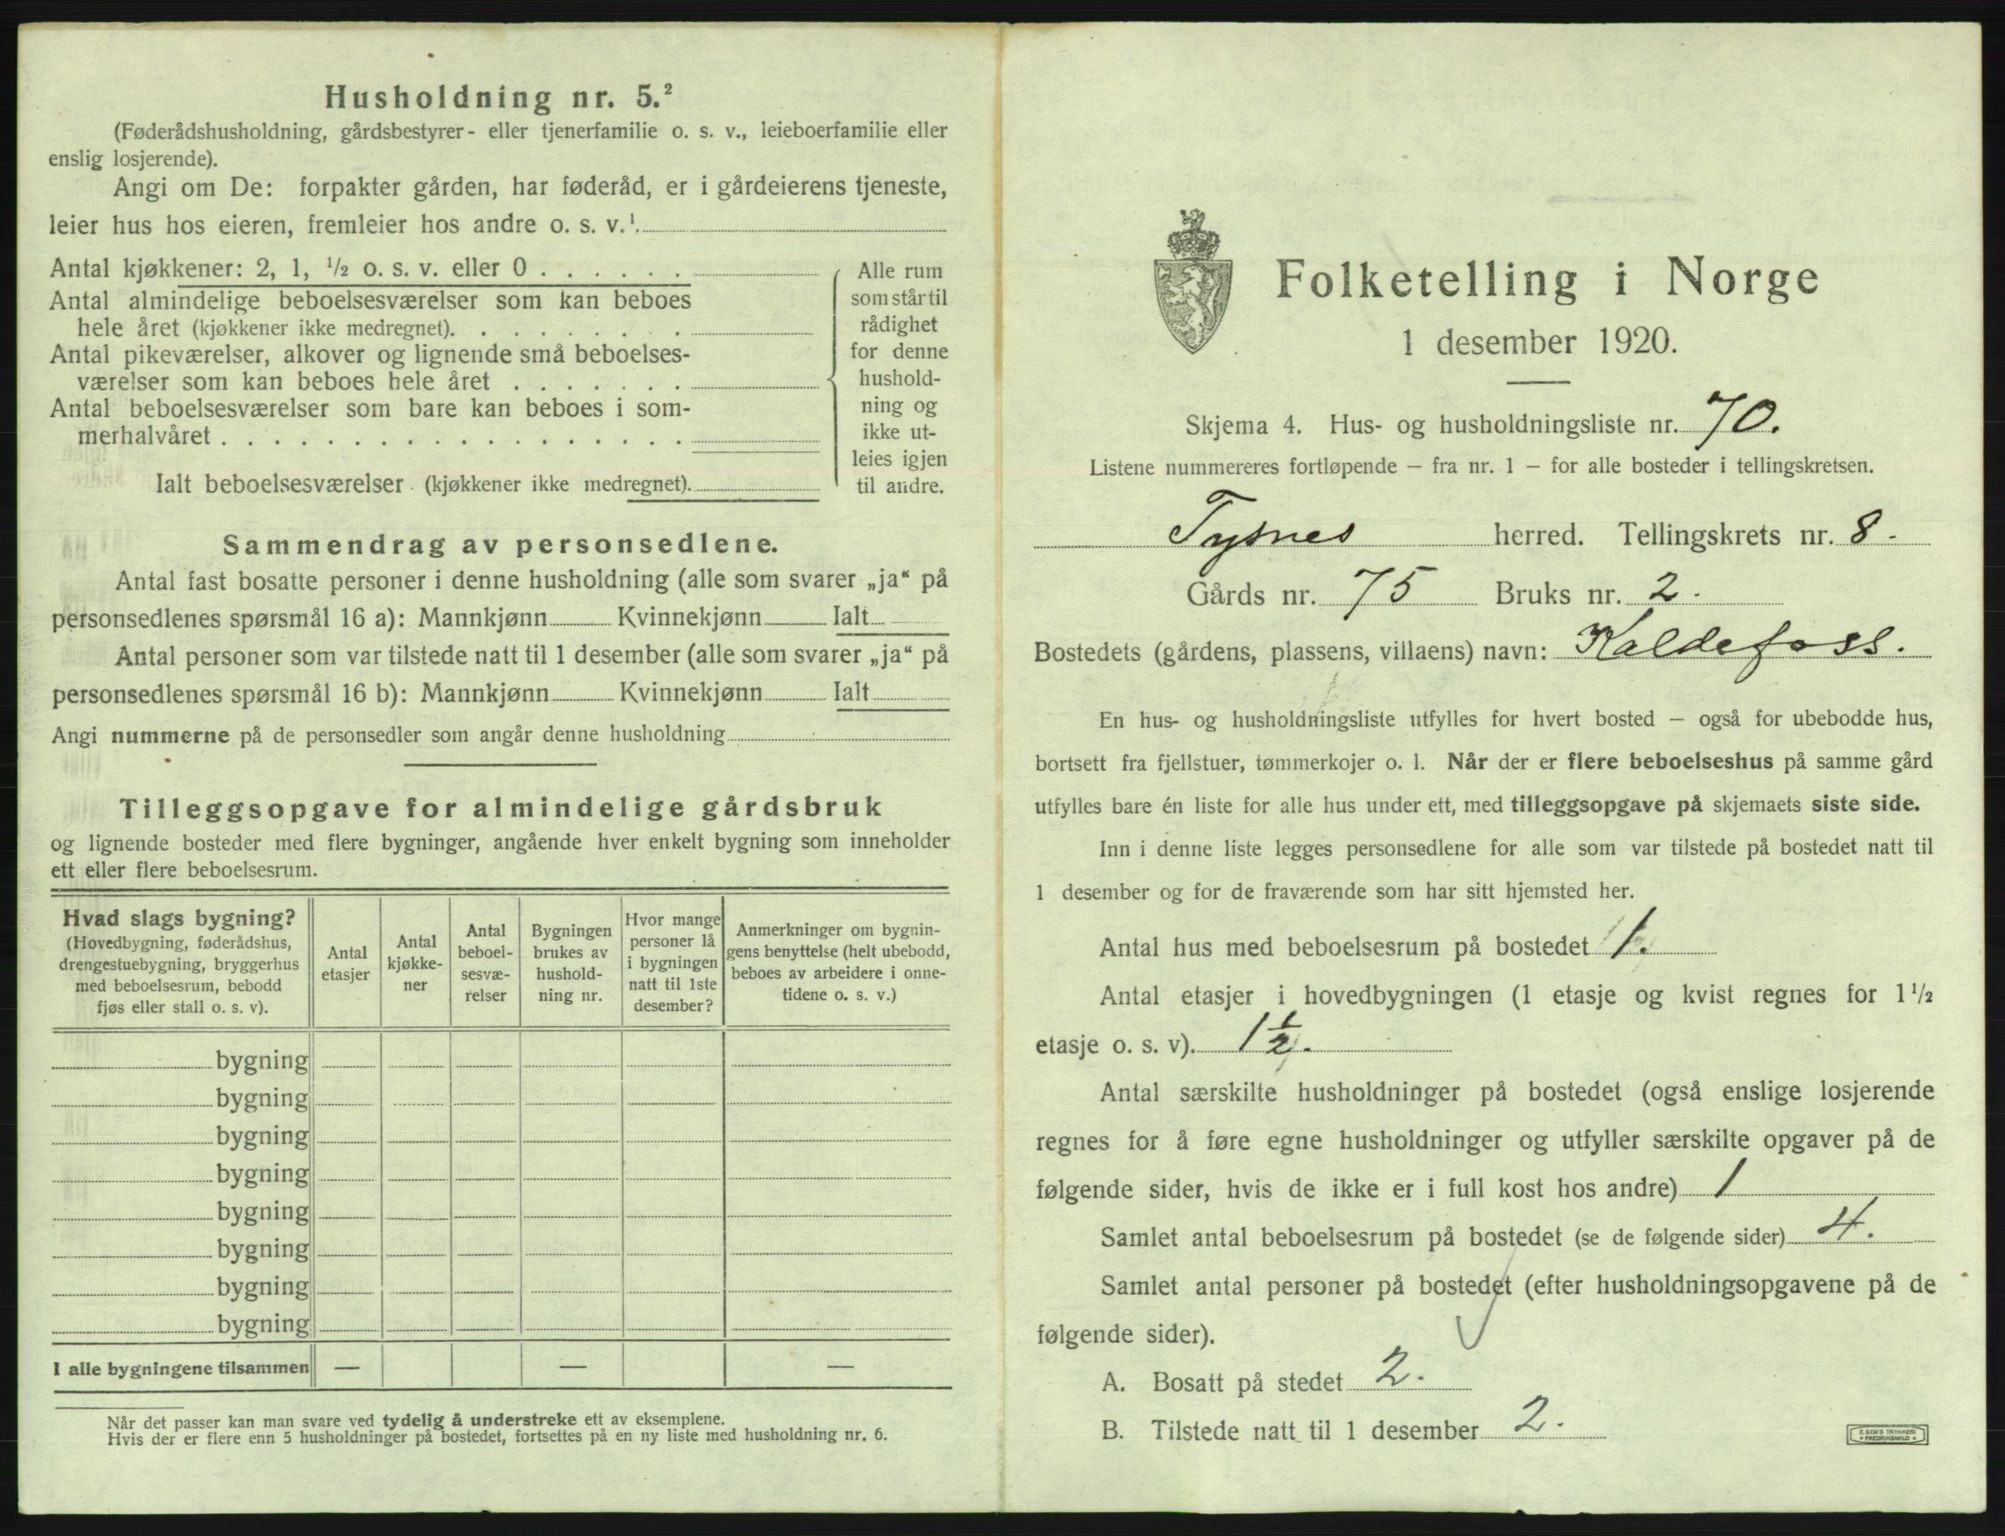 Husholdning nr. 5.²
(Føderådshusholdning, gårdsbestyrer- eller tjenerfamilie o. s. v., leieboerfamilie eller
enslig losjerende).
Angi om De: forpakter gården, har føderåd, er i gårdeierens tjeneste,
leier hus hos eieren, fremleier hos andre o. s. v.¹.
Antal kjøkkener: 2, 1, ½ o. s. v. eller 0 . . . . . .
Antal almindelige beboelsesværelser som kan beboes
hele året (kjøkkener ikke medregnet). . . . . . . . .
Antal pikeværelser, alkover og lignende små beboelses-
værelser som kan beboes hele året . . . . . . .
Antal beboelsesværelser som bare kan beboes i som-
merhalvåret . . . . . . . . . . . . . . . . . .
Ialt beboelsesværelser (kjøkkener ikke medregnet).
Alle rum
som står til
rådighet
for denne
hushold-
ning og
ikke ut-
leies igjen
til andre.
Sammendrag av personsedlene.
Antal fast bosatte personer i denne husholdning (alle som svarer „ja“ på
personsedlenes spørsmål 16 a): Mannkjønn Kvinnekjønn Ialt
Antal personer som var tilstede natt til 1 desember (alle som svarer „ja“ på
personsedlenes spørsmål 16 b): Mannkjønn Kvinnekjønn Ialt
Angi nummerne på de personsedler som angår denne husholdning
Tilleggsopgave for almindelige gårdsbruk
og lignende bosteder med flere bygninger, angående hver enkelt bygning som inneholder
ett eller flere beboelsesrum.
Hvad slags bygning?
(Hovedbygning, føderådshus,
drengestuebygning, bryggerhus
med beboelsesrum, bebodd
fjøs eller stall o. s. v).
Antal
etasjer
Antal
kjøkke-
ner
Antal
beboel-
sesvæ-
relser
Bygningen
brukes av
hushold-
ning nr.
Hvor mange
personer lå
i bygningen
natt til 1ste
desember?
Anmerkninger om bygnin-
gens benyttelse (helt ubebodd,
beboes av arbeidere i onne-
tidene o. s. v.)
bygning
bygning
bygning
bygning
bygning
bygning
bygning
bygning
I alle bygningene tilsammen — — —
Når det passer kan man svare ved tydelig å understreke ett av eksemplene.
Hvis der er flere enn 5 husholdninger på bostedet, fortsettes på en ny liste med husholdning nr. 6.
Folketelling i Norge
1 desember 1920.
Skjema 4. Hus- og husholdningsliste nr. 70.
Listene nummereres fortløpende — fra nr. 1 — for alle bosteder i tellingskretsen.
Tysnes herred. Tellingskrets nr. 8.
Gårds nr. 75 Bruks nr. 2.
Bostedets (gårdens, plassens, villaens) navn: Kaldefoss.
En hus- og husholdningsliste utfylles for hvert bosted — også for ubebodde hus,
bortsett fra fjellstuer, tømmerkojer o. l. Når der er flere beboelseshus på samme gård
utfylles bare én liste for alle hus under ett, med tilleggsopgave på skjemaets siste side.
Inn i denne liste legges personsedlene for alle som var tilstede på bostedet natt til
1 desember og for de fraværende som har sitt hjemsted her.
Antal hus med beboelsesrum på bostedet 1.
Antal etasjer i hovedbygningen (1 etasje og kvist regnes for 1½
etasje o. s. v). 1½.
Antal særskilte husholdninger på bostedet (også enslige losjerende
regnes for å føre egne husholdninger og utfyller særskilte opgaver på de
følgende sider, hvis de ikke er i full kost hos andre) 1
Samlet antal beboelsesrum på bostedet (se de følgende sider) 4.
Samlet antal personer på bostedet (efter husholdningsopgavene på de
følgende sider).
A. Bosatt på stedet 2.
B. Tilstede natt til 1 desember 2.